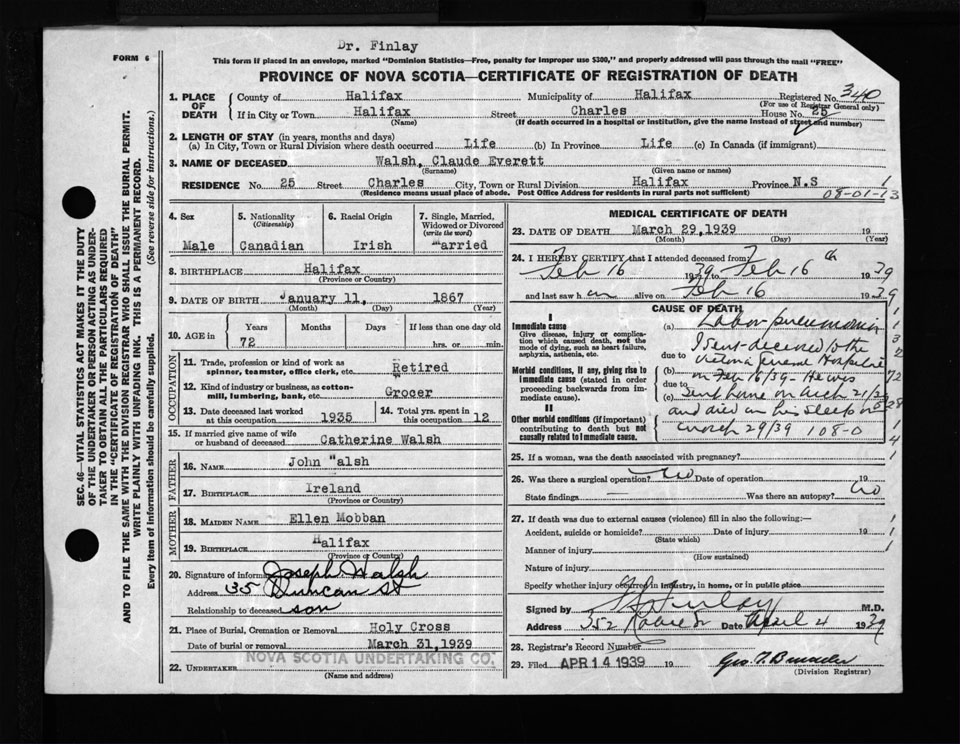 Dr. Finlay
FORM 6
This form if placed in an envelope, marked "Dominion Statistics—Free, penalty for improper use $300," and properly addressed will pass through the mail "FREE"
PROVINCE OF NOVA SCOTIA—CERTIFICATE OF REGISTRATION OF DEATH
1. PLACE OF DEATH County of Halifax Municipality of Halifax Registered No. 340
(For use of Registrar General only)
If in City or Town Halifax Street Charles House No. 25
(Name) (If death occurred in a hospital or institution, give the name instead of street and number)
2. LENGTH OF STAY (in years, months and days)
(a) In City, Town or Rural Division where death occurred Life (b) In Province Life (c) In Canada (if immigrant)
3. NAME OF DECEASED Walsh, Claude Everett
(Surname) (Given name or names)
RESIDENCE No. 25 Street Charles City, Town or Rural Division Halifax Province N.S
(Residence means usual place of abode. Post Office Address for residents in rural parts not sufficient)
08-01-13
4. Sex Male
5. Nationality (Citizenship) Canadian
6. Racial Origin Irish
7. Single, Married, Widowed or Divorced (write the word) Married
8. BIRTHPLACE Halifax
(Province or Country)
9. DATE OF BIRTH January 11, 1867
(Month) (Day) (Year)
10. AGE in Years Months Days If less than one day old
72 hrs. or min.
OCCUPATION
11. Trade, profession or kind of work as spinner, teamster, office clerk, etc. Retired
12. Kind of industry or business, as cotton-mill, lumbering, bank, etc. Grocer
13. Date deceased last worked at this occupation 1935
14. Total yrs. spent in this occupation 12
15. If married give name of wife or husband of deceased Catherine Walsh
FATHER
16. NAME John Walsh
17. BIRTHPLACE Ireland
(Province or Country)
MOTHER
18. MAIDEN NAME Ellen Mobban
19. BIRTHPLACE Halifax
(Province or Country)
20. Signature of informant Joseph Walsh
Address 135 Duncan St
Relationship to deceased son
21. Place of Burial, Cremation or Removal Holy Cross
Date of burial or removal March 31, 1939
22. UNDERTAKER NOVA SCOTIA UNDERTAKING CO.
(Name and address)
MEDICAL CERTIFICATE OF DEATH
23. DATE OF DEATH March 29, 1939 19
(Month) (Day) (Year)
24. I HEREBY CERTIFY that I attended deceased from:
Feb 16 1939 to Feb 16th 1939
and last saw h im alive on Feb 16 1939
CAUSE OF DEATH
I
Immediate cause
Give disease, injury or complication which caused death, not the mode of dying, such as heart failure, asphyxia, asthenia, etc.
Morbid conditions, if any, giving rise to immediate cause (stated in order proceeding backwards from immediate cause).
II
Other morbid conditions (if important) contributing to death but not causally related to immediate cause.
(a) Lobar pneumonia
I sent deceased to the
due to Victoria General Hospital
(b) on Feb 16/39 - He was
due to
(c) sent home on March 21/39
and died in his sleep on
March 29/39 108-0
25. If a woman, was the death associated with pregnancy?
26. Was there a surgical operation? No Date of operation 19
State findings — Was there an autopsy? No
27. If death was due to external causes (violence) fill in also the following:—
Accident, suicide or homicide? Date of injury 19
(State which)
Manner of injury
(How sustained)
Nature of injury
Specify whether injury occurred in industry, in home, or in public place
Signed by Finlay M.D.
Address 352 Date April 4 1939
28. Registrar's Record Number
29. Filed APR 14 1939 19
(Division Registrar)
SEC. 46—VITAL STATISTICS ACT MAKES IT THE DUTY
OF THE UNDERTAKER OR PERSON ACTING AS UNDER-
TAKER TO OBTAIN ALL THE PARTICULARS REQUIRED
IN THE "CERTIFICATE OF REGISTRATION OF DEATH"
AND TO FILE THE SAME WITH THE DIVISION REGISTRAR WHO SHALL ISSUE THE BURIAL PERMIT.
WRITE PLAINLY WITH UNFADING INK. THIS IS A PERMANENT RECORD.
Every item of information should be carefully supplied. (See reverse side for instructions.)